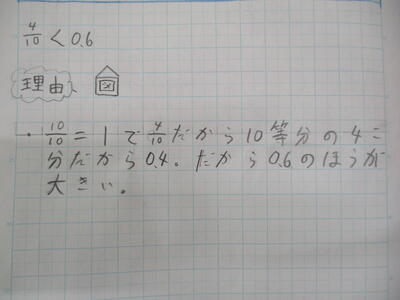 4/10 < 0.6
理由、図
・10/10 = 1で4/10だから10等分の4こ
分だから0.4。だから0.6のほうが
大きい。